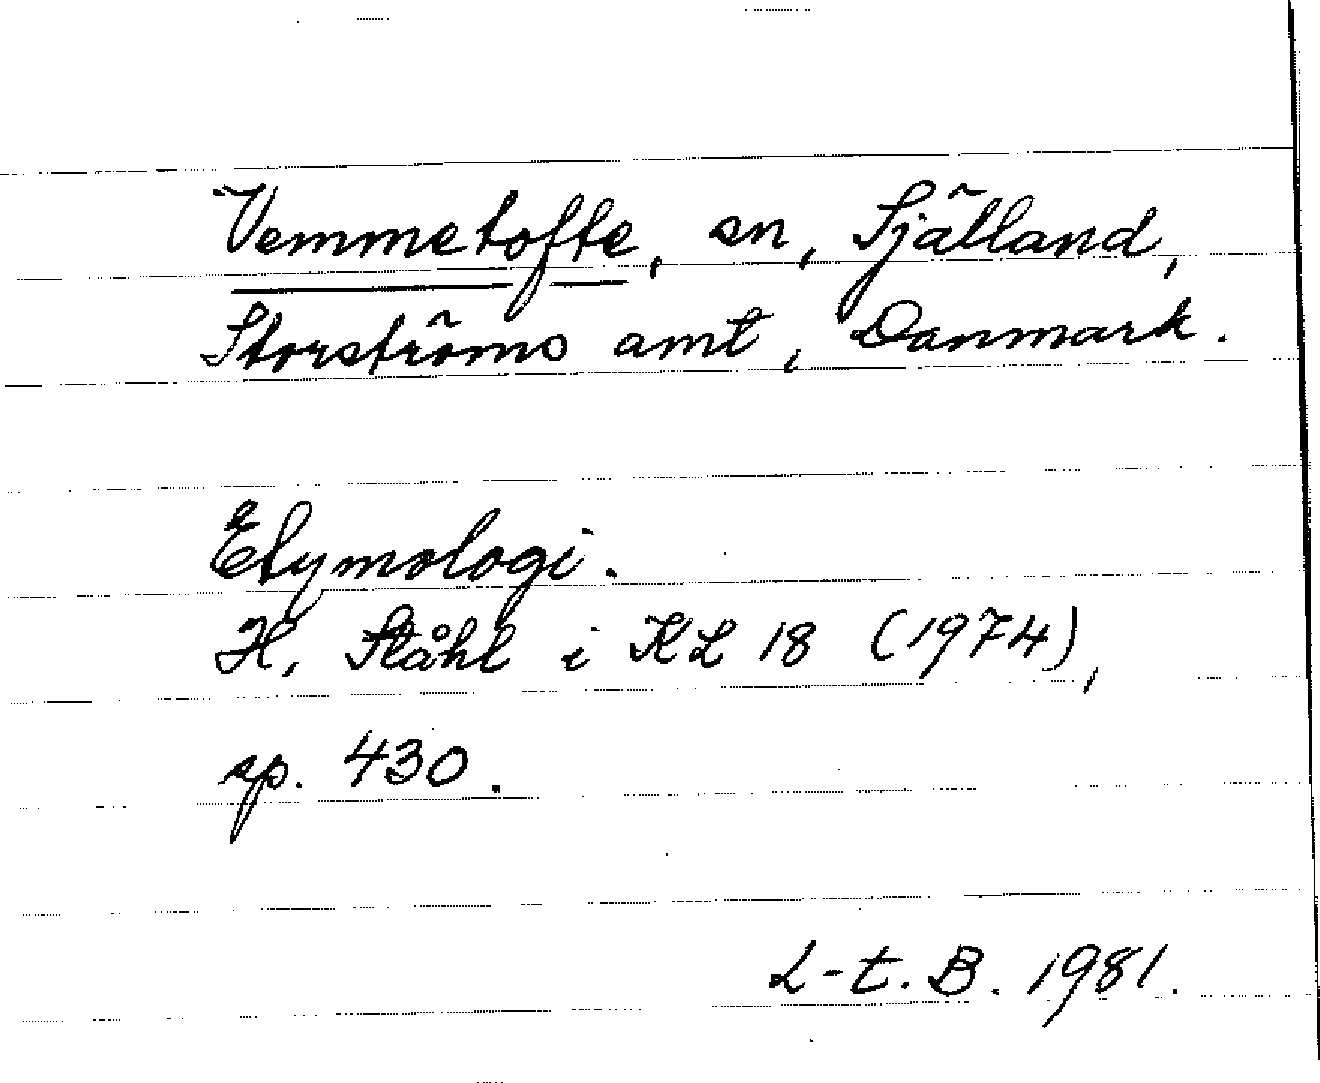 Vemmetofte, sn, Själland,
Storströms amt, Danmark.
Etymologi.
H. Ståhl i KL 18 (1974),
sp. 430.
L-t. B. 1981.